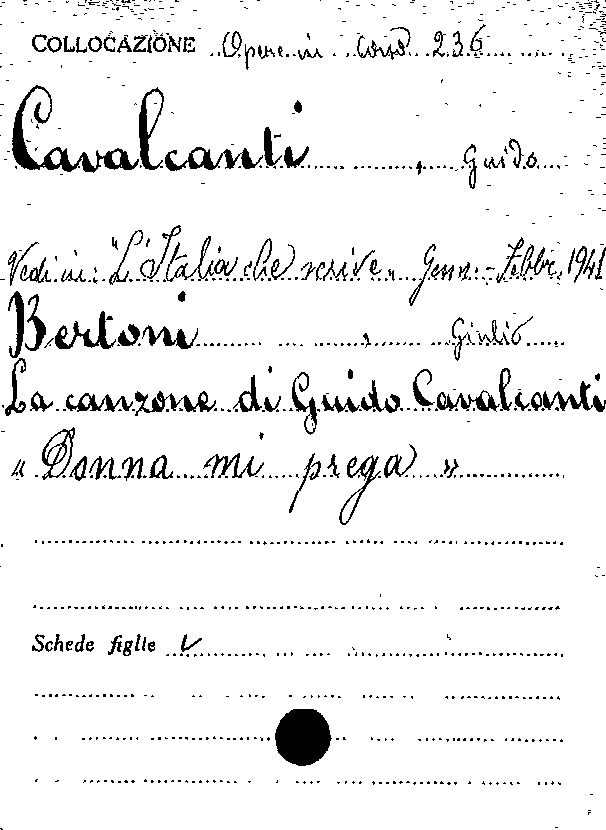 COLLOCAZIONE Opere in corso 236
Cavalcanti, Guido
Vedi in: "L'Italia che scrive" Genn.-Febbr. 1941
Bertoni, Giulio
La canzone di Guido Cavalcanti
« Donna mi prega »
Schede figlie V